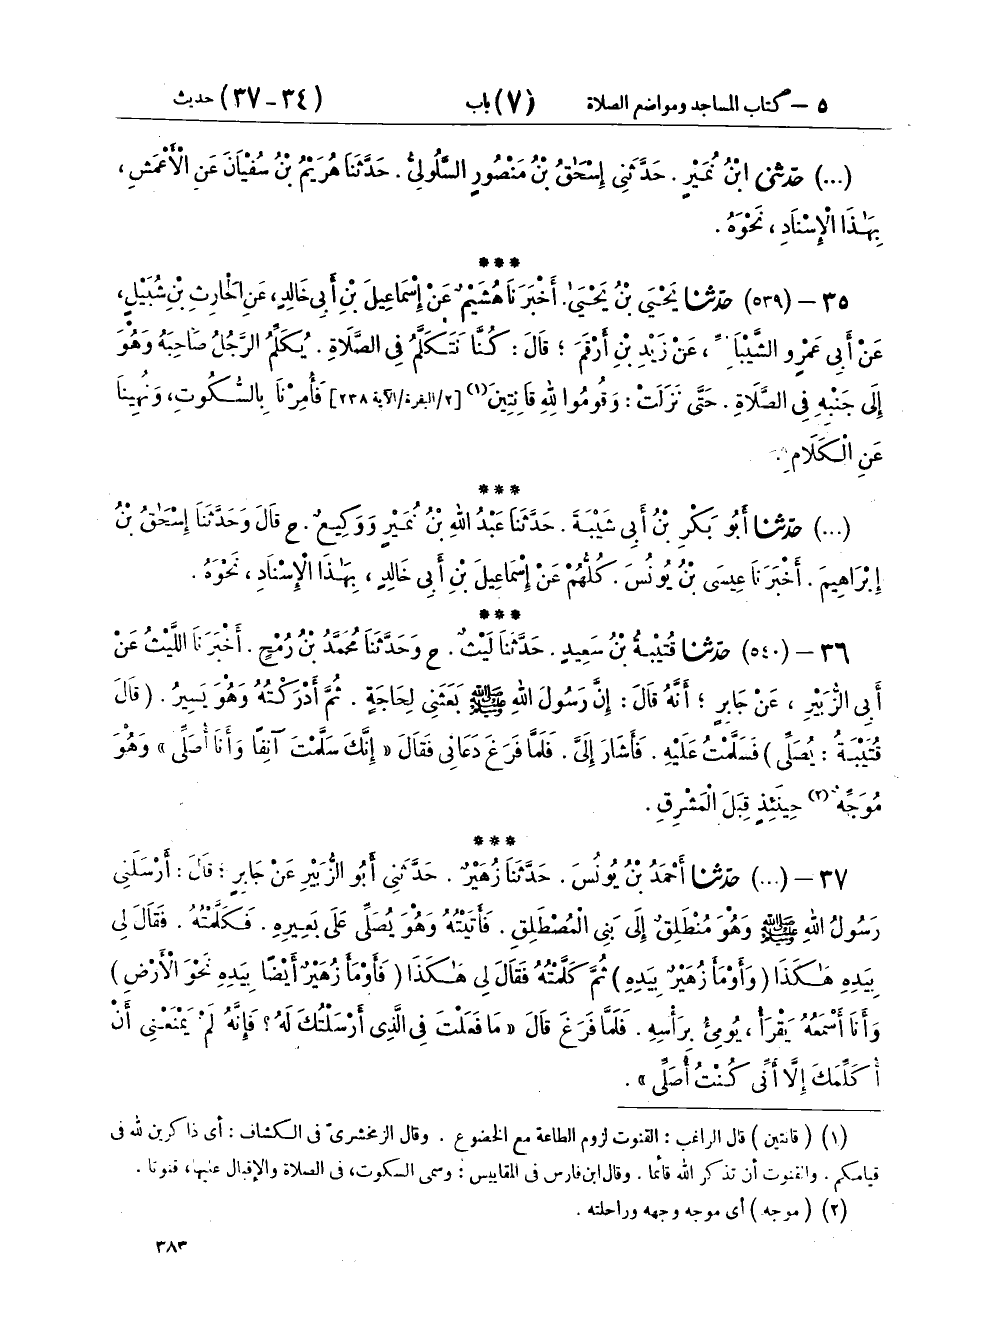 ٥ – كتاب المساجد ومواضع الصلاة (٧) باب (٣٤ - ٣٧) حديث
(...) حَدَّثَنِي ابْنُ نُمَيْرٍ . حَدَّثَنِي إِسْحَٰقُ بْنُ مَنْصُورٍ السَّلُولِيُّ . حَدَّثَنَا هُرَيْمُ بْنُ سُفْيَانَ عَنِ الْأَعْمَشِ ،
بِهَٰذَا الْإِسْنَادِ ، نَحْوَهُ .
***
٣٥ – (٥٣٩) حَدَّثَنَا يَحْيَى بْنُ يَحْيَىٰ. أَخْبَرَنَا هُشَيْمٌ عَنْ إِسْمَاعِيلَ بْنِ أَبِي خَالِدٍ، عَنِ الْحَارِثِ بْنِ شُبَيْلٍ،
عَنْ أَبِي عَمْرٍو الشَّيْبَانِيِّ ، عَنْ زَيْدِ بْنِ أَرْقَمَ ؛ قَالَ : كُنَّا نَتَكَلَّمُ فِي الصَّلَاةِ . يُكَلِّمُ الرَّجُلُ صَاحِبَهُ وَهُوَ
إِلَى جَنْبِهِ فِي الصَّلَاةِ . حَتَّى نَزَلَتْ : وَقُومُوا لِلهِ قَانِتِينَ(١) [٢/البقرة/الآية ٢٣٨] فَأُمِرْنَا بِالسُّكُوتِ، وَنُهِينَا
عَنِ الْكَلَامِ .
***
(...) حَدَّثَنَا أَبُو بَكْرِ بْنُ أَبِي شَيْبَةَ . حَدَّثَنَا عَبْدُ اللهِ بْنُ نُمَيْرٍ وَوَكِيعٌ . ح قَالَ وَحَدَّثَنَا إِسْحَٰقُ بْنُ
إِبْرَاهِيمَ . أَخْبَرَنَا عِيسَى بْنُ يُونُسَ . كُلُّهُمْ عَنْ إِسْمَاعِيلَ بْنِ أَبِي خَالِدٍ ، بِهَٰذَا الْإِسْنَادِ، نَحْوَهُ .
***
٣٦ – (٥٤٠) حَدَّثَنَا قُتَيْبَةُ بْنُ سَعِيدٍ . حَدَّثَنَا لَيْثٌ . ح وَحَدَّثَنَا مُحَمَّدُ بْنُ رُمْحٍ . أَخْبَرَنَا اللَّيْثُ عَنْ
أَبِي الزُّبَيْرِ ، عَنْ جَابِرٍ ؛ أَنَّهُ قَالَ : إِنَّ رَسُولَ اللهِ ﷺ بَعَثَنِي لِحَاجَةٍ . ثُمَّ أَدْرَكْتُهُ وَهُوَ يَسِيرُ . ( قَالَ
قُتَيْبَةُ : يُصَلِّي ) فَسَلَّمْتُ عَلَيْهِ . فَأَشَارَ إِلَيَّ . فَلَمَّا فَرَغَ دَعَانِي فَقَالَ « إِنَّكَ سَلَّمْتَ آنِفًا وَأَنَا أُصَلِّي » وَهُوَ
مُوَجِّهٌ(٢) حِينَئِذٍ قِبَلَ الْمَشْرِقِ .
***
٣٧ – (...) حَدَّثَنَا أَحْمَدُ بْنُ يُونُسَ . حَدَّثَنَا زُهَيْرٌ . حَدَّثَنِي أَبُو الزُّبَيْرِ عَنْ جَابِرٍ ؛ قَالَ : أَرْسَلَنِي
رَسُولُ اللهِ ﷺ وَهُوَ مُنْطَلِقٌ إِلَى بَنِي الْمُصْطَلِقِ . فَأَتَيْتُهُ وَهُوَ يُصَلِّي عَلَى بَعِيرِهِ . فَكَلَّمْتُهُ . فَقَالَ لِي
بِيَدِهِ هَٰكَذَا ( وَأَوْمَأَ زُهَيْرٌ بِيَدِهِ ) ثُمَّ كَلَّمْتُهُ فَقَالَ لِي هَٰكَذَا ( فَأَوْمَأَ زُهَيْرٌ أَيْضًا بِيَدِهِ نَحْوَ الْأَرْضِ )
وَأَنَا أَسْمَعُهُ يَقْرَأُ ، يُومِئُ بِرَأْسِهِ . فَلَمَّا فَرَغَ قَالَ « مَا فَعَلْتَ فِي الَّذِي أَرْسَلْتُكَ لَهُ ؟ فَإِنَّهُ لَمْ يَمْنَعْنِي أَنْ
أُكَلِّمَكَ إِلَّا أَنِّي كُنْتُ أُصَلِّي » .
(١) ( قانتين ) قال الراغب : القنوت لزوم الطاعة مع الخضوع . وقال الزمخشرى فى الكشاف : أى ذاكرين لله فى
قيامكم . والقنوت أن تذكر الله قائما . وقال ابن فارس فى المقاييس : وسمى السكوت، فى الصلاة والإقبال عليها، قنوتا .
(٢) ( موجه ) أى موجه وجهه وراحلته .
٣٨٣